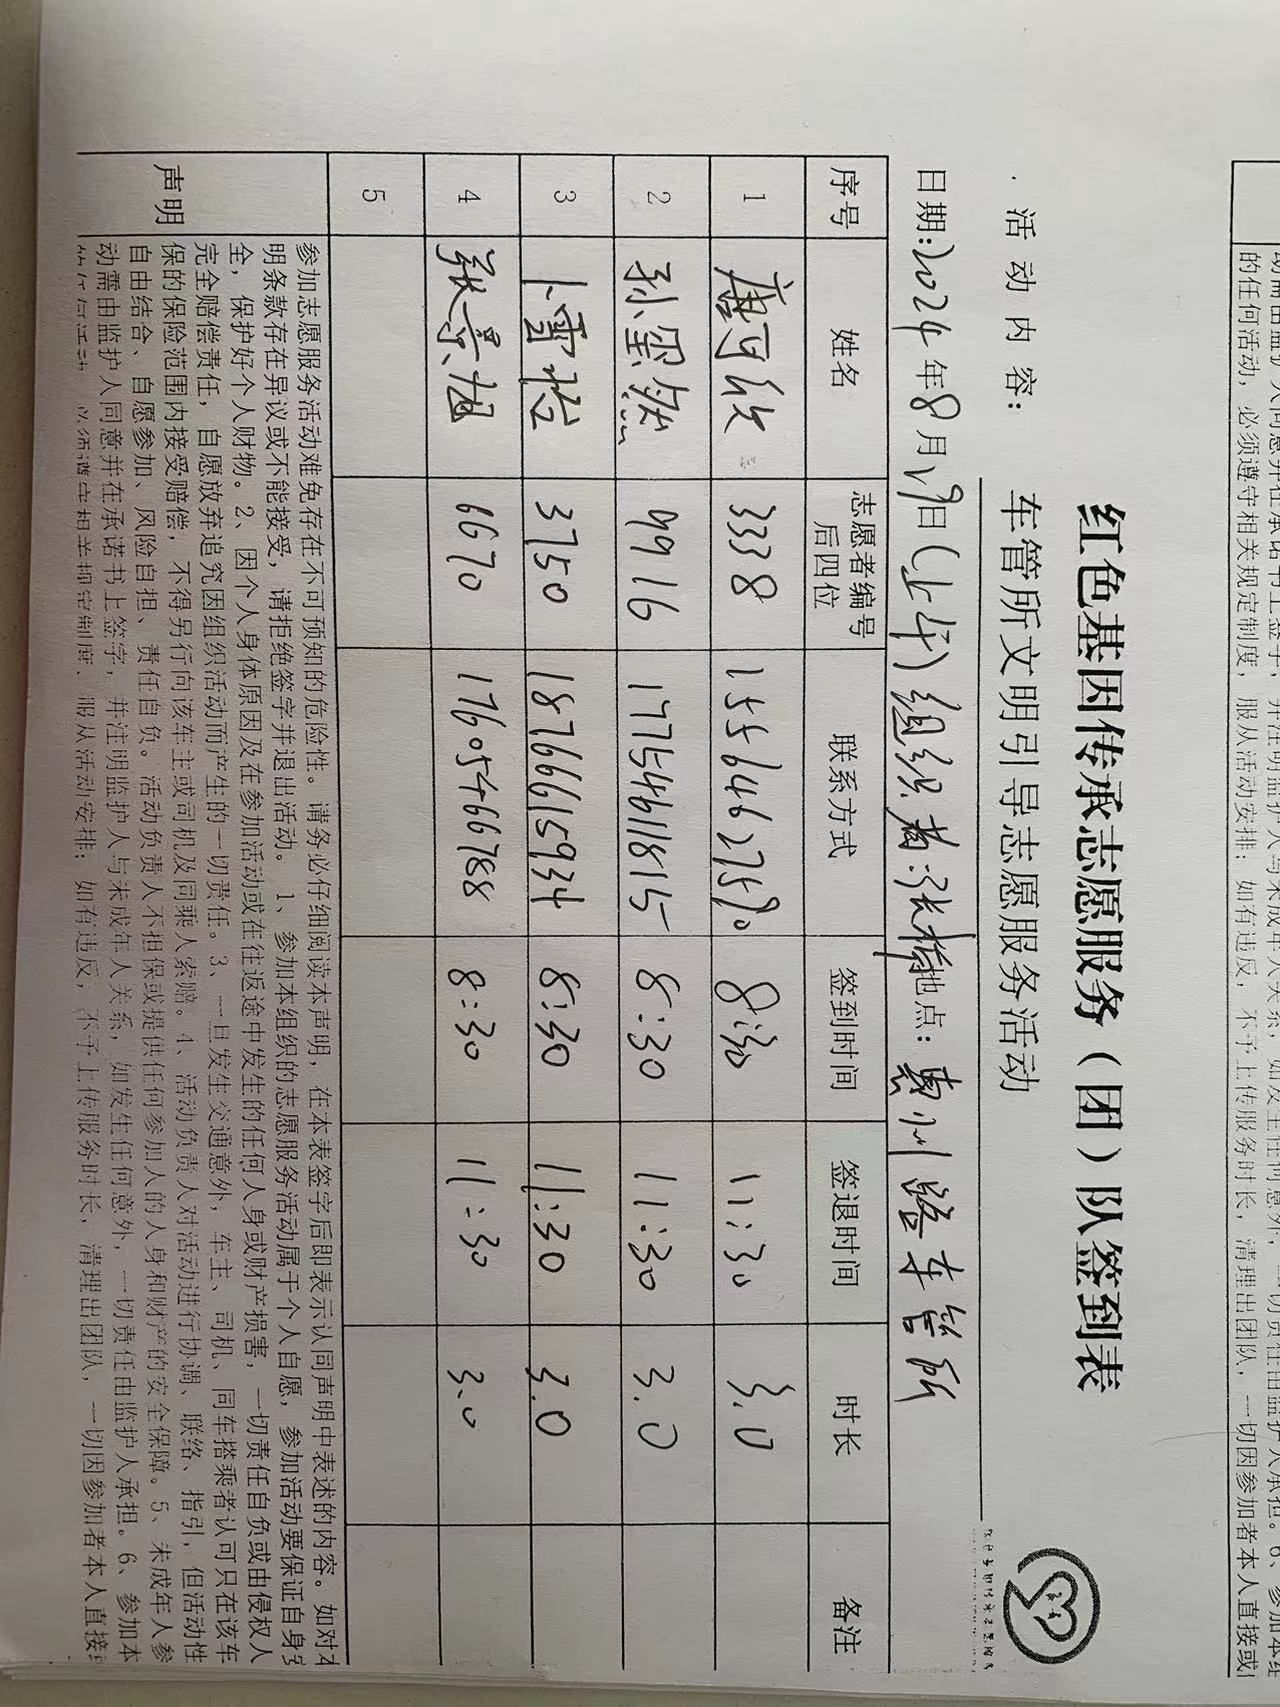 红色基因传承志愿服务（团）队签到表
活动内容： 车管所文明引导志愿服务活动
日期:2024年8月19日(上午) 组织者:张梅 地点: 惠州路车管所
序号 姓名 志愿者编号后四位 联系方式 签到时间 签退时间 时长 备注
1 唐可欣 3338 15564627590 8:30 11:30 3.0
2 孙墨然 9916 17754611815 8:30 11:30 3.0
3 卜雪哈 3750 18766615934 8:30 11:30 3.0
4 张景旭 6670 17605466788 8:30 11:30 3.0
5
声明
参加志愿服务活动难免存在不可预知的危险性。请务必仔细阅读本声明，在本表签字后即表示认同声明中表述的内容。如对
明条款存在异议或不能接受，请拒绝签字并退出活动。1、参加本组织的志愿服务活动属于个人自愿，参加活动要保证自身
全，保护好个人财物。2、因个人身体原因及在参加活动或在往返途中发生的任何人身或财产损害，一切责任自负或由侵权人
完全赔偿责任，自愿放弃追究因组织活动而产生的一切责任。3、一旦发生交通意外，车主、司机、同车搭乘者认可只在该车
保的保险范围内接受赔偿，不得另行向该车主或司机及同乘人索赔。4、活动负责人对活动进行协调、联络、指引，但活动性
自由结合、自愿参加、风险自担、责任自负。活动负责人不担保或提供任何参加人的人身和财产的安全保障。5、未成年人参
动需由监护人同意并在承诺书上签字，并注明监护人与未成年人关系，如发生任何意外，一切责任由监护人承担。6、参加本
必须遵守相关规定制度、服从活动安排；如有违反，不予上传服务时长，清理出团队，一切因参加者本人直接
动需由监护人同意并在承诺书上签字，并注明监护人与未成年人关系，如发生任何意外，一切责任由监护人承担。6、参加本组
的任何活动，必须遵守相关规定制度，服从活动安排；如有违反，不予上传服务时长，清理出团队，一切因参加者本人直接或